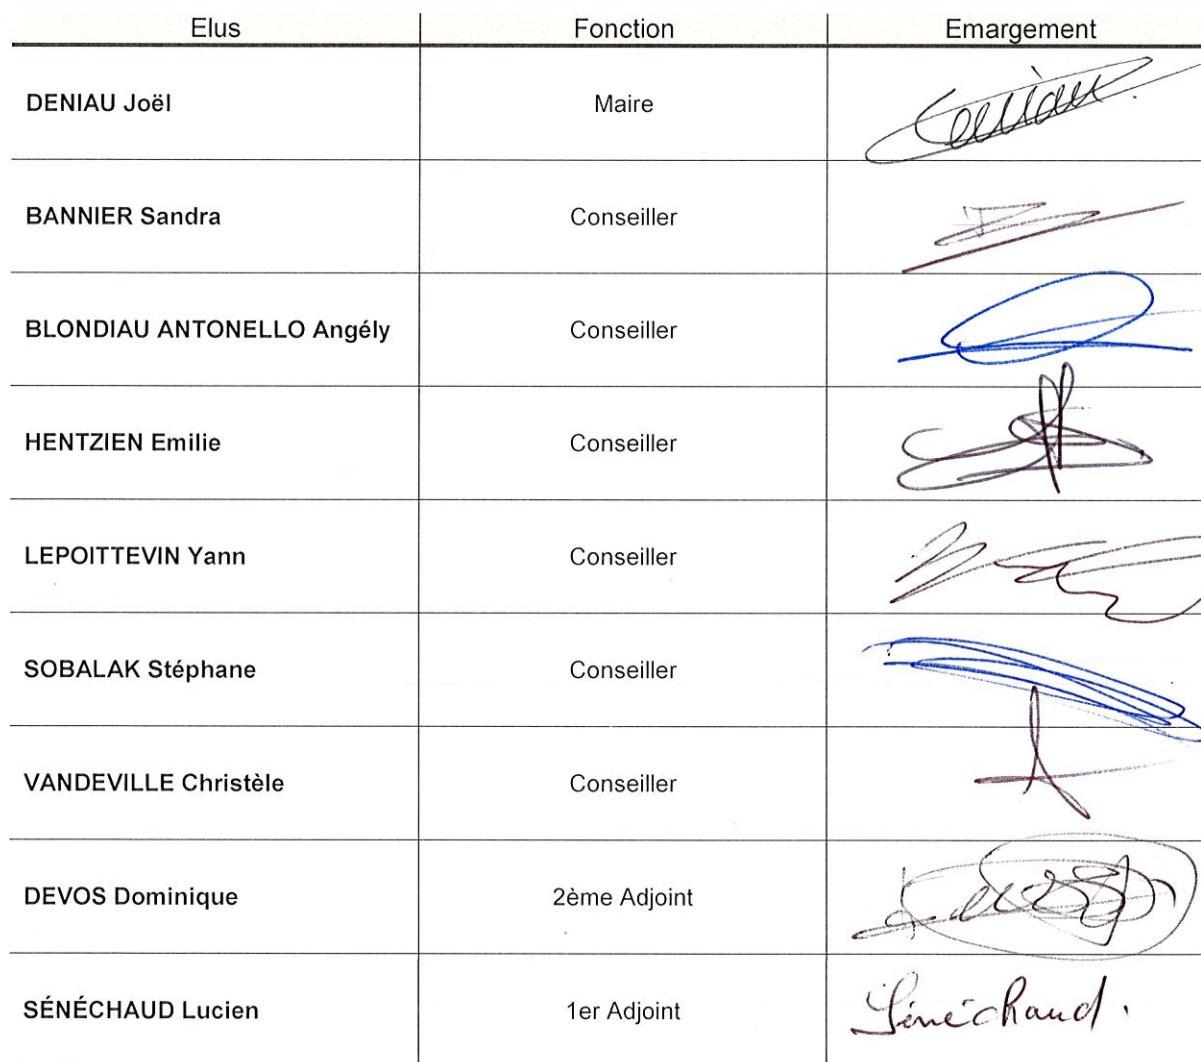 Elus Fonction Emargement
DENIAU Joël Maire
BANNIER Sandra Conseiller
BLONDIAU ANTONELLO Angély Conseiller
HENTZIEN Emilie Conseiller
LEPOITTEVIN Yann Conseiller
SOBALAK Stéphane Conseiller
VANDEVILLE Christèle Conseiller
DEVOS Dominique 2ème Adjoint
SÉNÉCHAUD Lucien 1er Adjoint Sénéchaud.